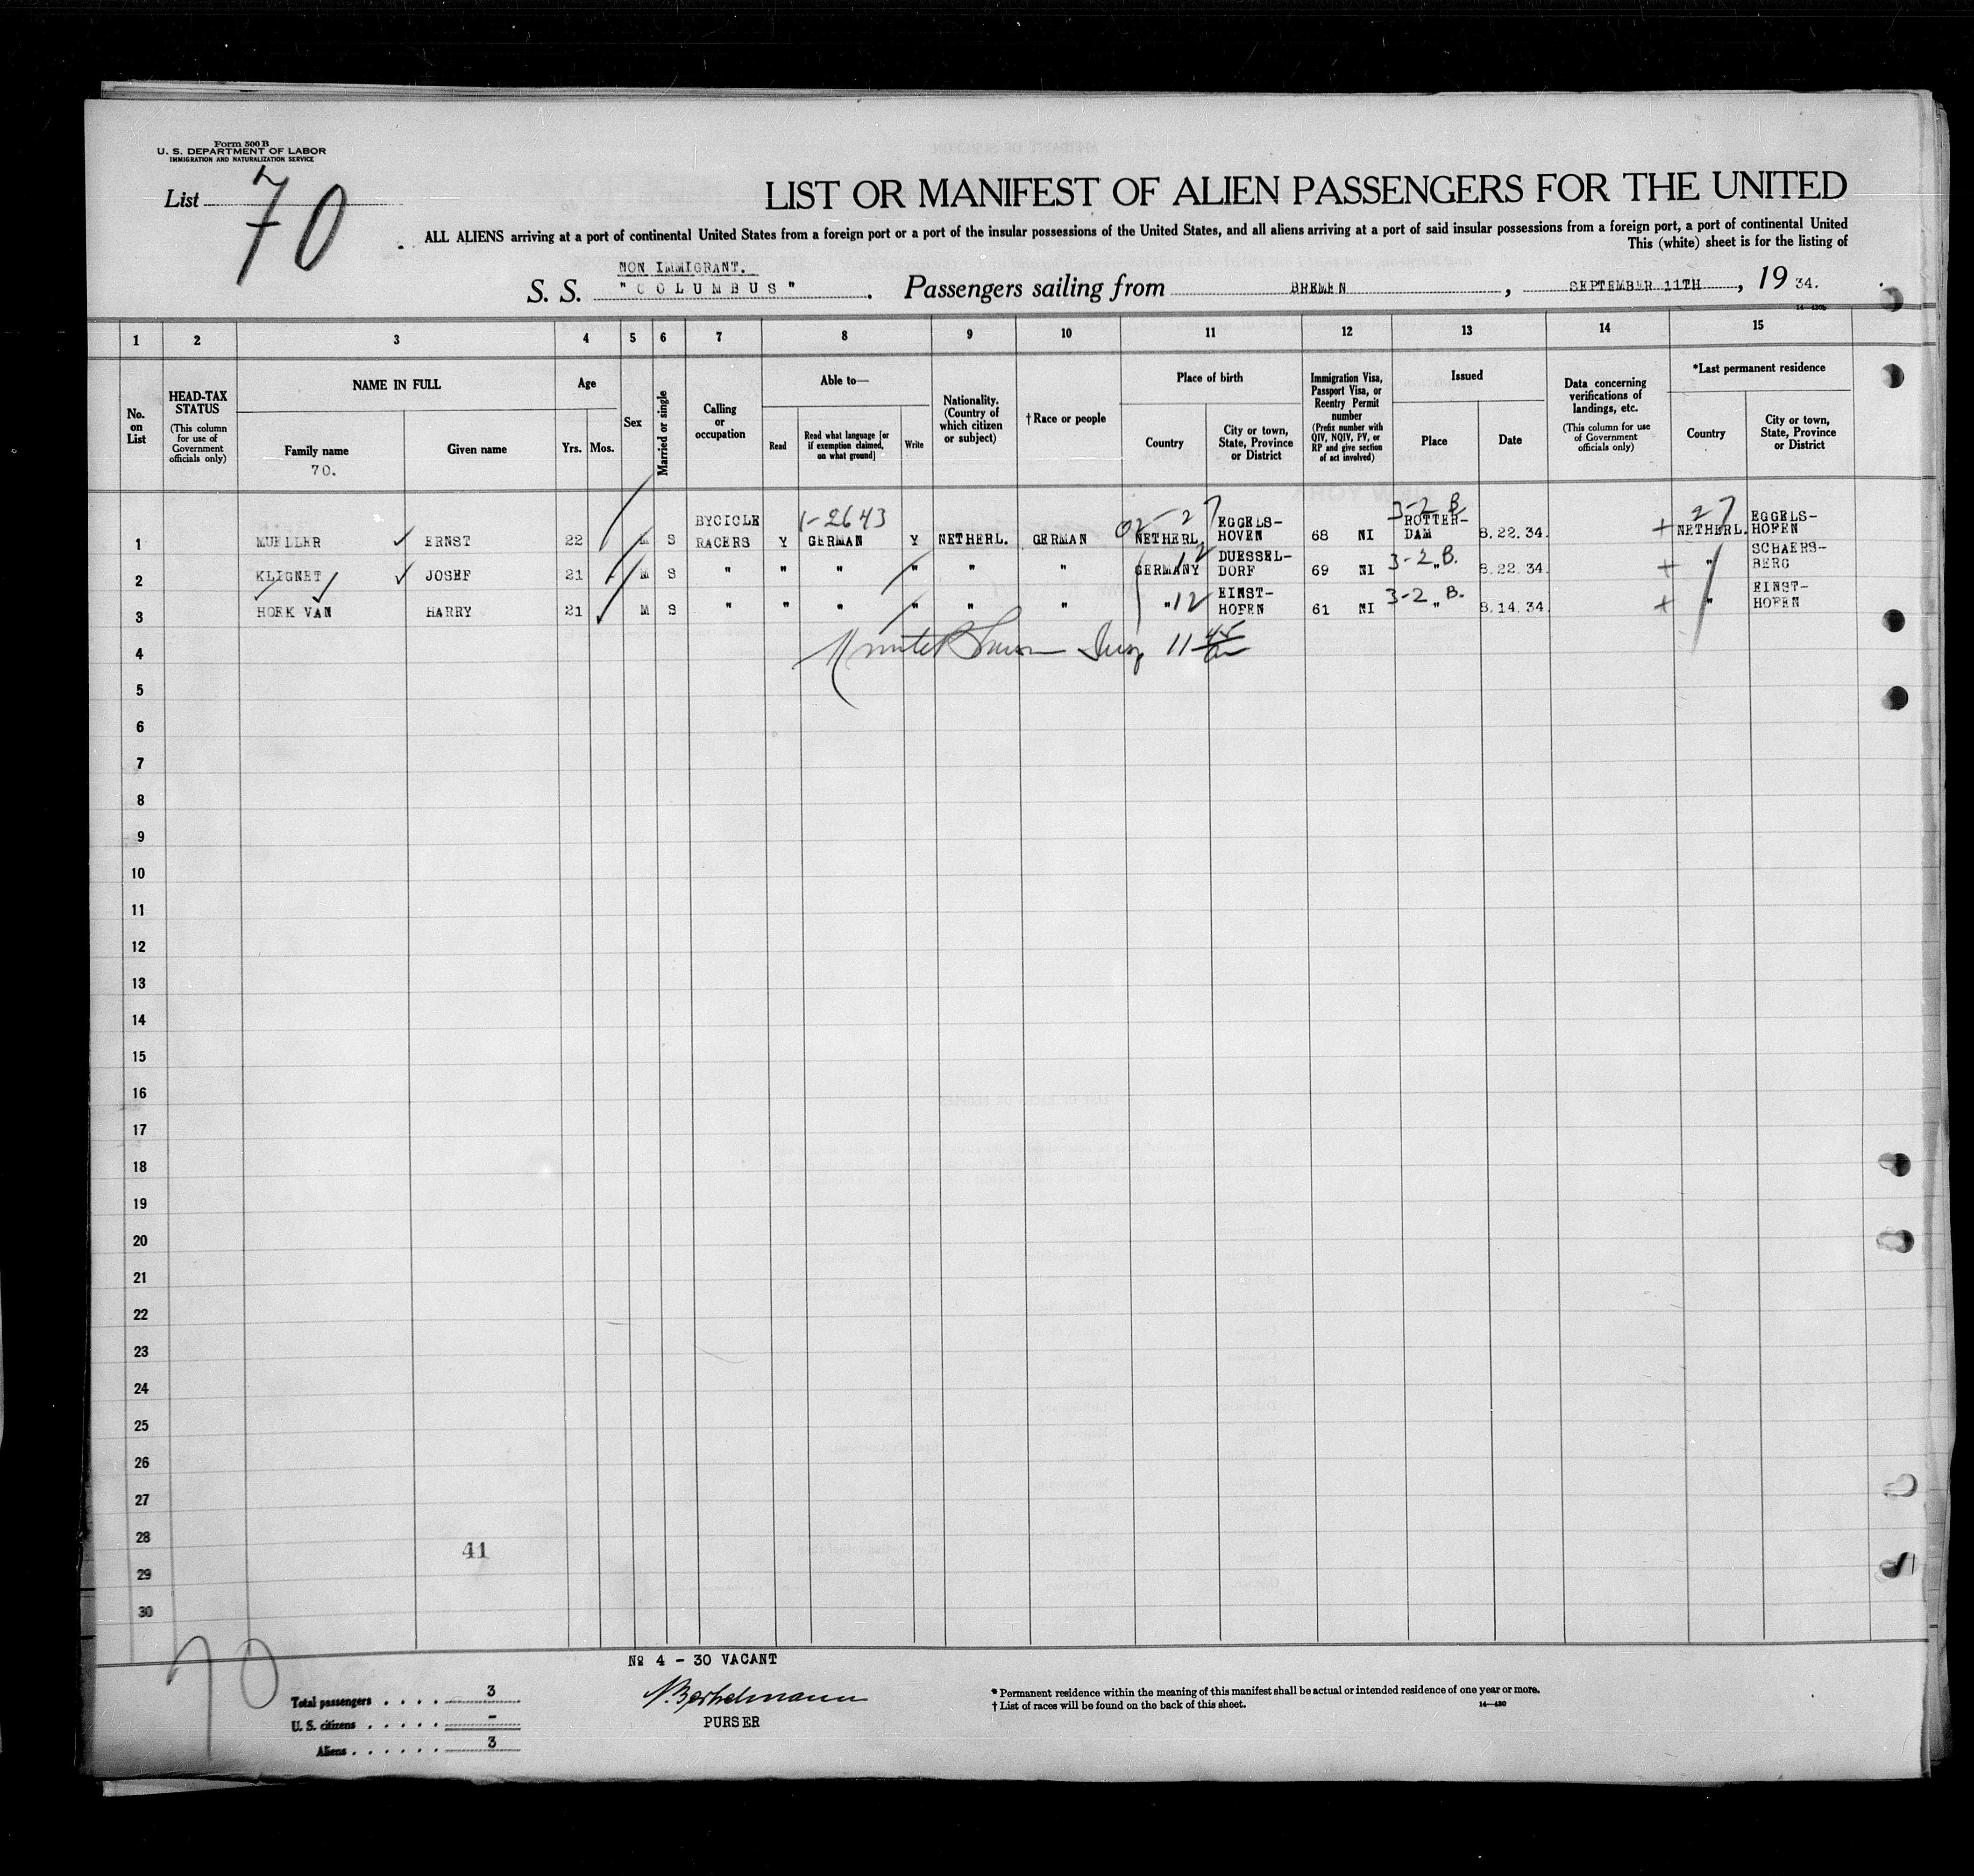 Form 500 B
U. S. DEPARTMENT OF LABOR
IMMIGRATION AND NATURALIZATION SERVICE
List 70
LIST OR MANIFEST OF ALIEN PASSENGERS FOR THE UNITED
ALL ALIENS arriving at a port of continental United States from a foreign port or a port of the insular possessions of the United States, and all aliens arriving at a port of said insular possessions from a foreign port, a port of continental United
This (white) sheet is for the listing of
NON IMMIGRANT.
S. S. "COLUMBUS". Passengers sailing from BREMEN, SEPTEMBER 11TH, 19 34.
1 2 3 4 5 6 7 8 9 10 11 12 13 14 15
No. on List
HEAD-TAX STATUS (This column for use of Government officials only)
NAME IN FULL
Family name
70.
Given name
Age
Yrs. Mos.
Sex
Married or single
Calling or occupation
Able to—
Read
Read what language [or if exemption claimed, on what ground]
Write
Nationality. (Country of which citizen or subject)
† Race or people
Place of birth
Country
City or town, State, Province or District
Immigration Visa, Passport Visa, or Reentry Permit number (Prefix number with QIV, NQIV, PV, or RP and give section of act involved)
Issued
Place
Date
Data concerning verifications of landings, etc. (This column for use of Government officials only)
*Last permanent residence
Country
City or town, State, Province or District
1-2643 3-2 B 27
1 MUELLER ERNST 22 M S BYCICLE RACERS Y GERMAN Y NETHERL. GERMAN NETHERL. EGGELS-HOVEN 68 NI ROTTER-DAM 8.22.34. + NETHERL. EGGELS-HOFEN
2 KLIGNET JOSEF 21 M S " " " " " " GERMANY 12 DUESSEL-DORF 69 NI 3-2 " B. 8.22.34. + " SCHAERS-BERG
3 HOEK VAN HARRY 21 M S " " " " " " " 12 EINST-HOFEN 61 NI 3-2 " B. 8.14.34. + " EINST-HOFEN
4
5
6
7
8
9
10
11
12
13
14
15
16
17
18
19
20
21
22
23
24
25
26
27
28
41
29
30
70
№ 4 - 30 VACANT
Total passengers . . . . 3
U. S. citizens . . . . . -
Aliens . . . . . . 3
PURSER
* Permanent residence within the meaning of this manifest shall be actual or intended residence of one year or more.
† List of races will be found on the back of this sheet.
14—430